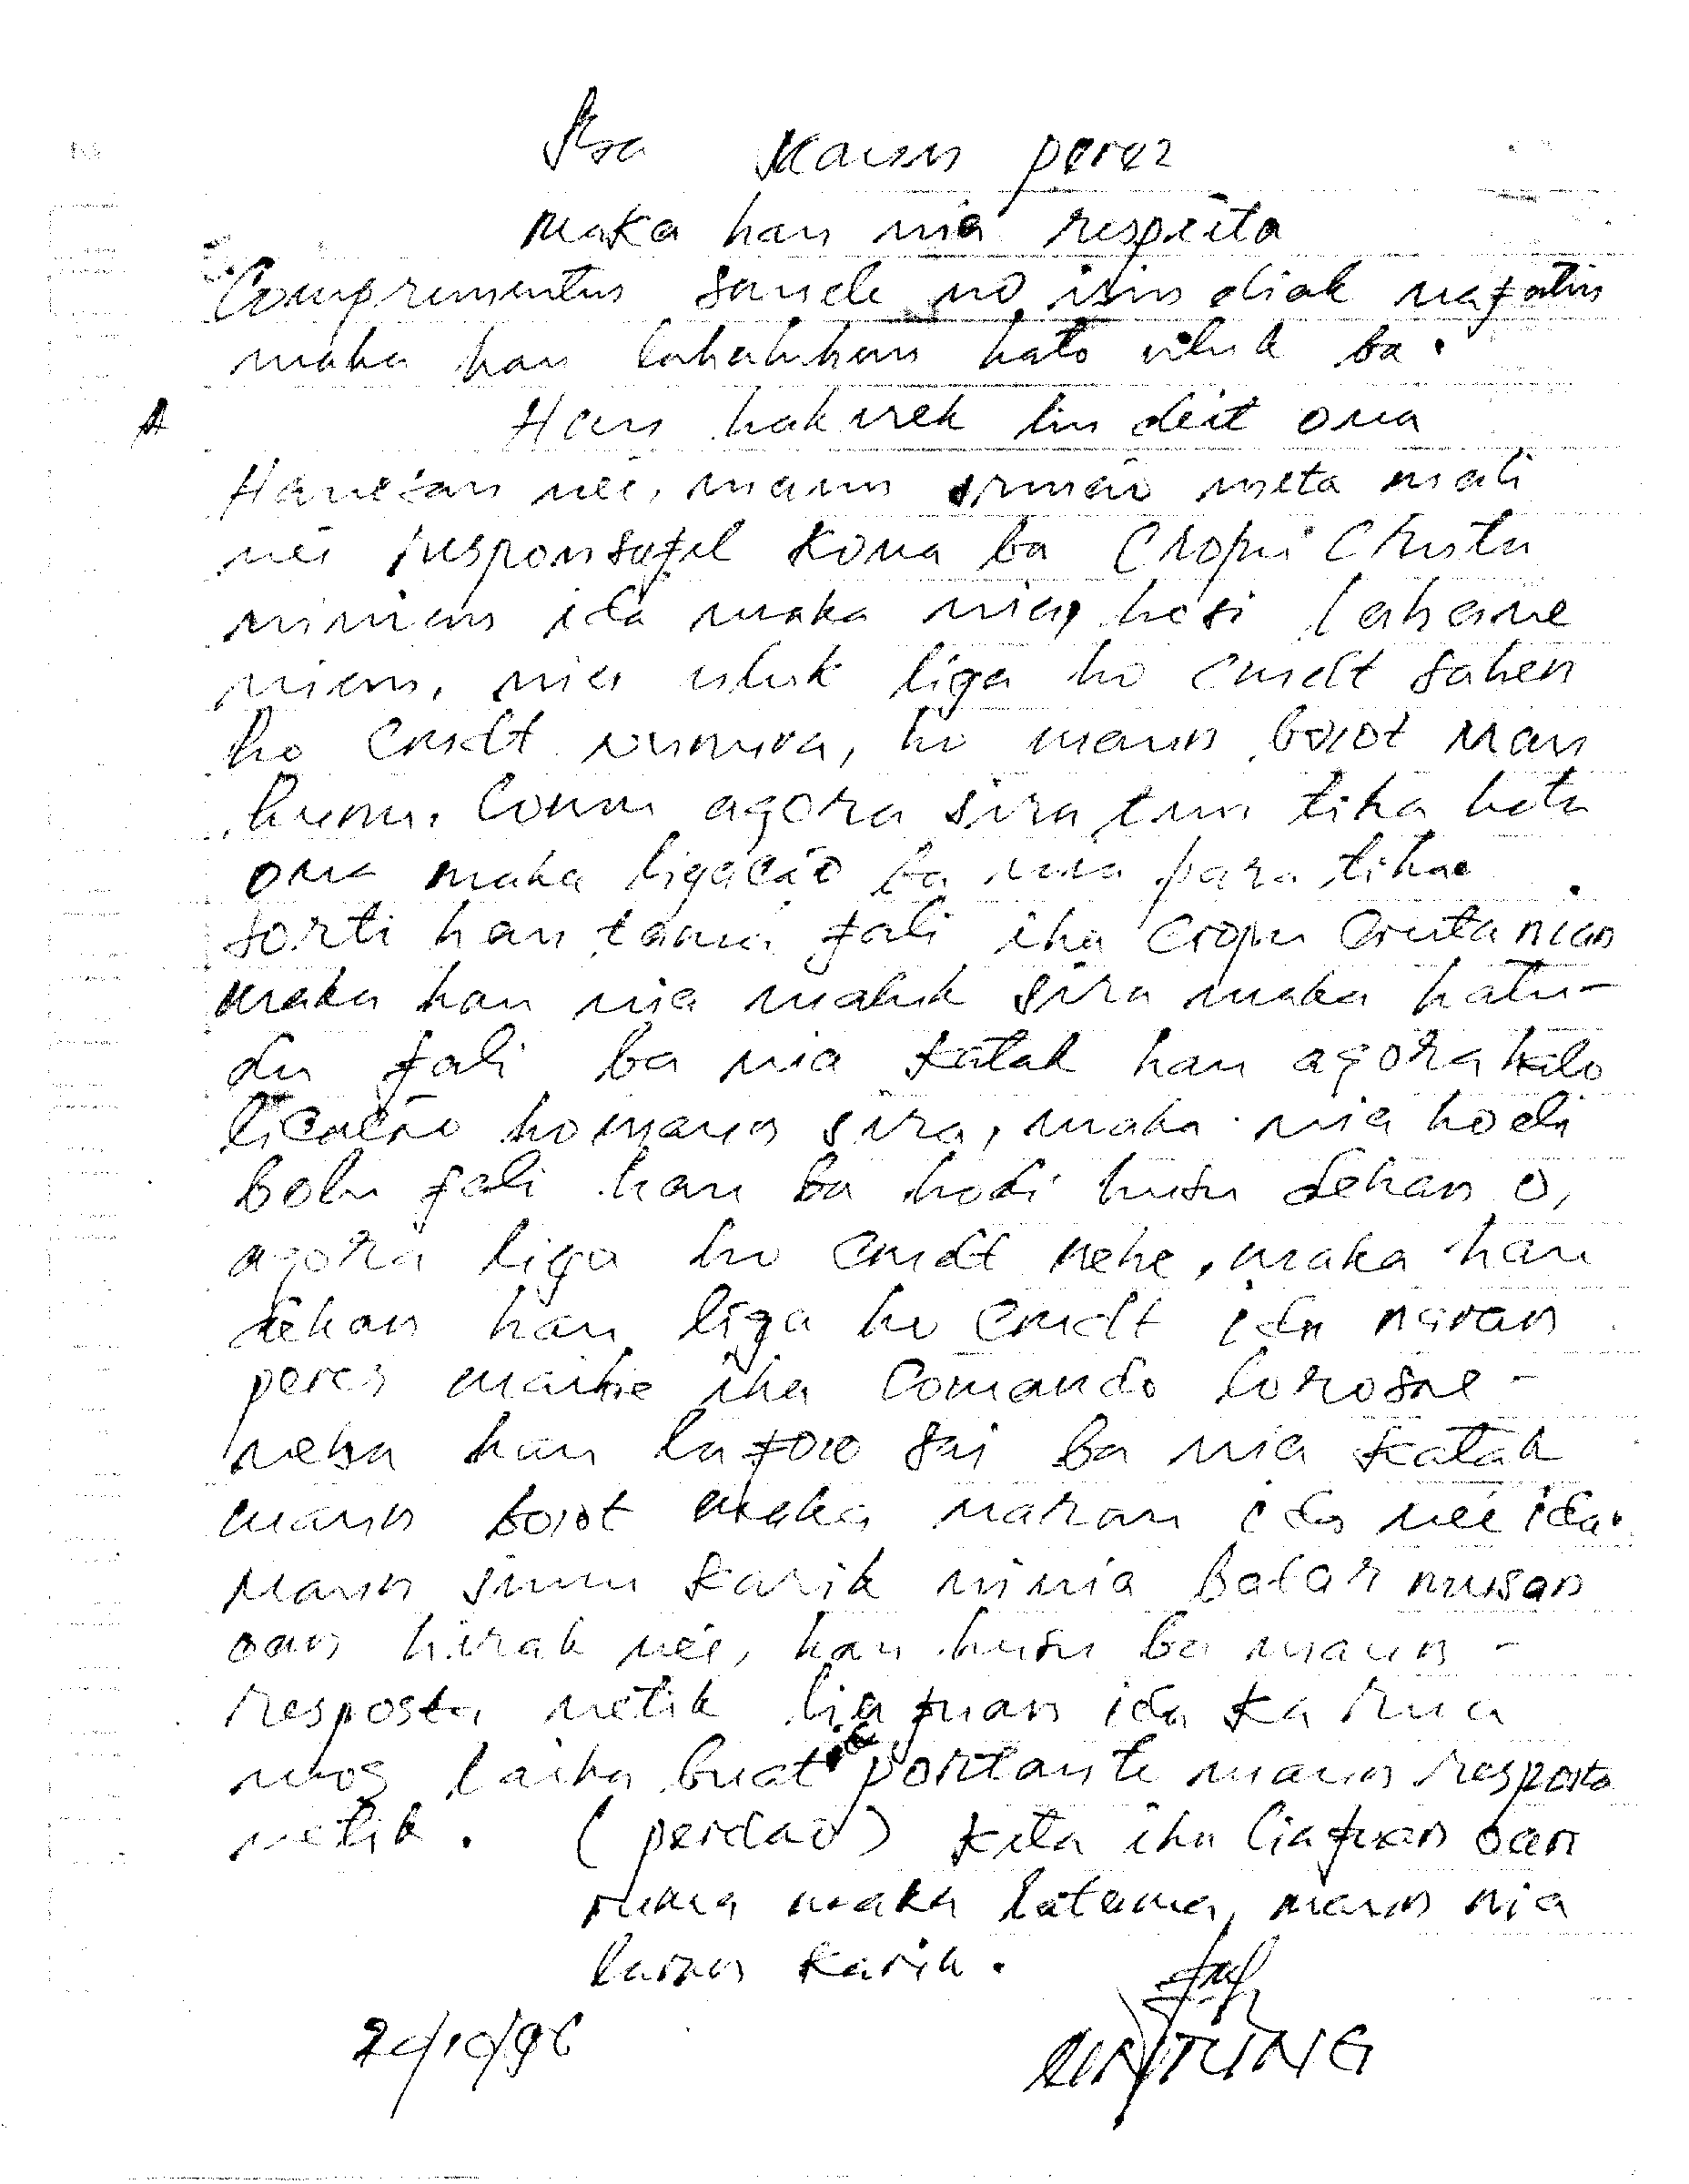 Ksa Maun perez
Maka hau nia respeita
Comprimentus saude no isin diak nafatin
maka hau lahaluhan hato uluk ba.
A Hau hakerek liu deit ona
Hanesan nei, maun irmão meta mali
nei responsafel kona ba Cropu Crista
ninian ida maka nia, hosi lahane
nian, nia uluk liga ho cmdt sahen
ho cmdt ninura, ho maun boot Mau
hunu. Comu agora sira tun tiha hotu
ona maka ligação ba nia para tiha.
sorti hau tama fali iha cropu Crista nian
maka hau nia maluk sira maka hatu-
du fali ba nia katak hau agora halo
licação ho maun sira, maka nia hodi
bolu fali hau ba hodi husu dehan o,
agora liga ho cmdt nehe, maka hau
dehan hau liga ho cmdt ida naran
peres maibe iha Comando lorosae -
neba hau la foo sai ba nia katak
maun boot maka naran ida nei ida.
Maun simu karik ninia batar musan
oan hirak nei, hau husu ba maun -
resposta netik liafuan ida ka rua
mos laiha buat importante maun resposta
netik. (perdaõ) kita iha liafuan oan
ruma maka latama, maun nia
laran karik.
20/10/96